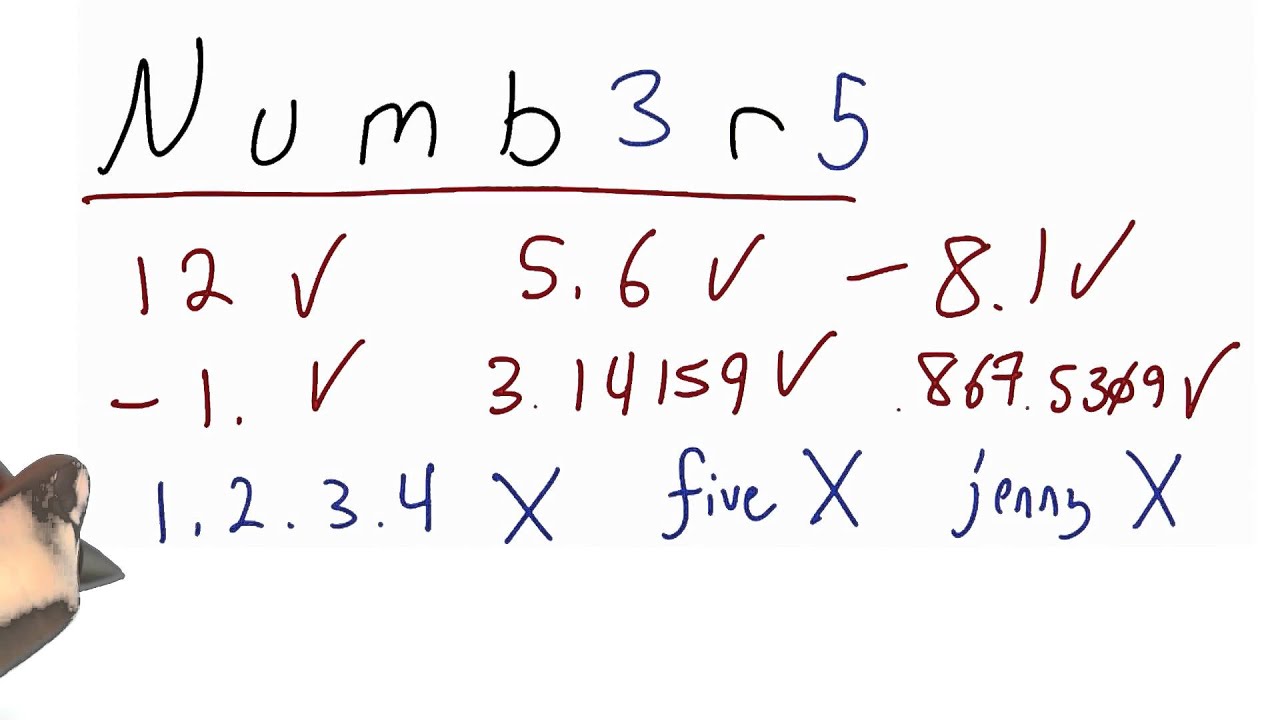 Numb3r5
12 ✓ 5.6 ✓ -8.1 ✓
-1. ✓ 3.14159 ✓ .867.5309 ✓
1.2.3.4 X five X jenny X